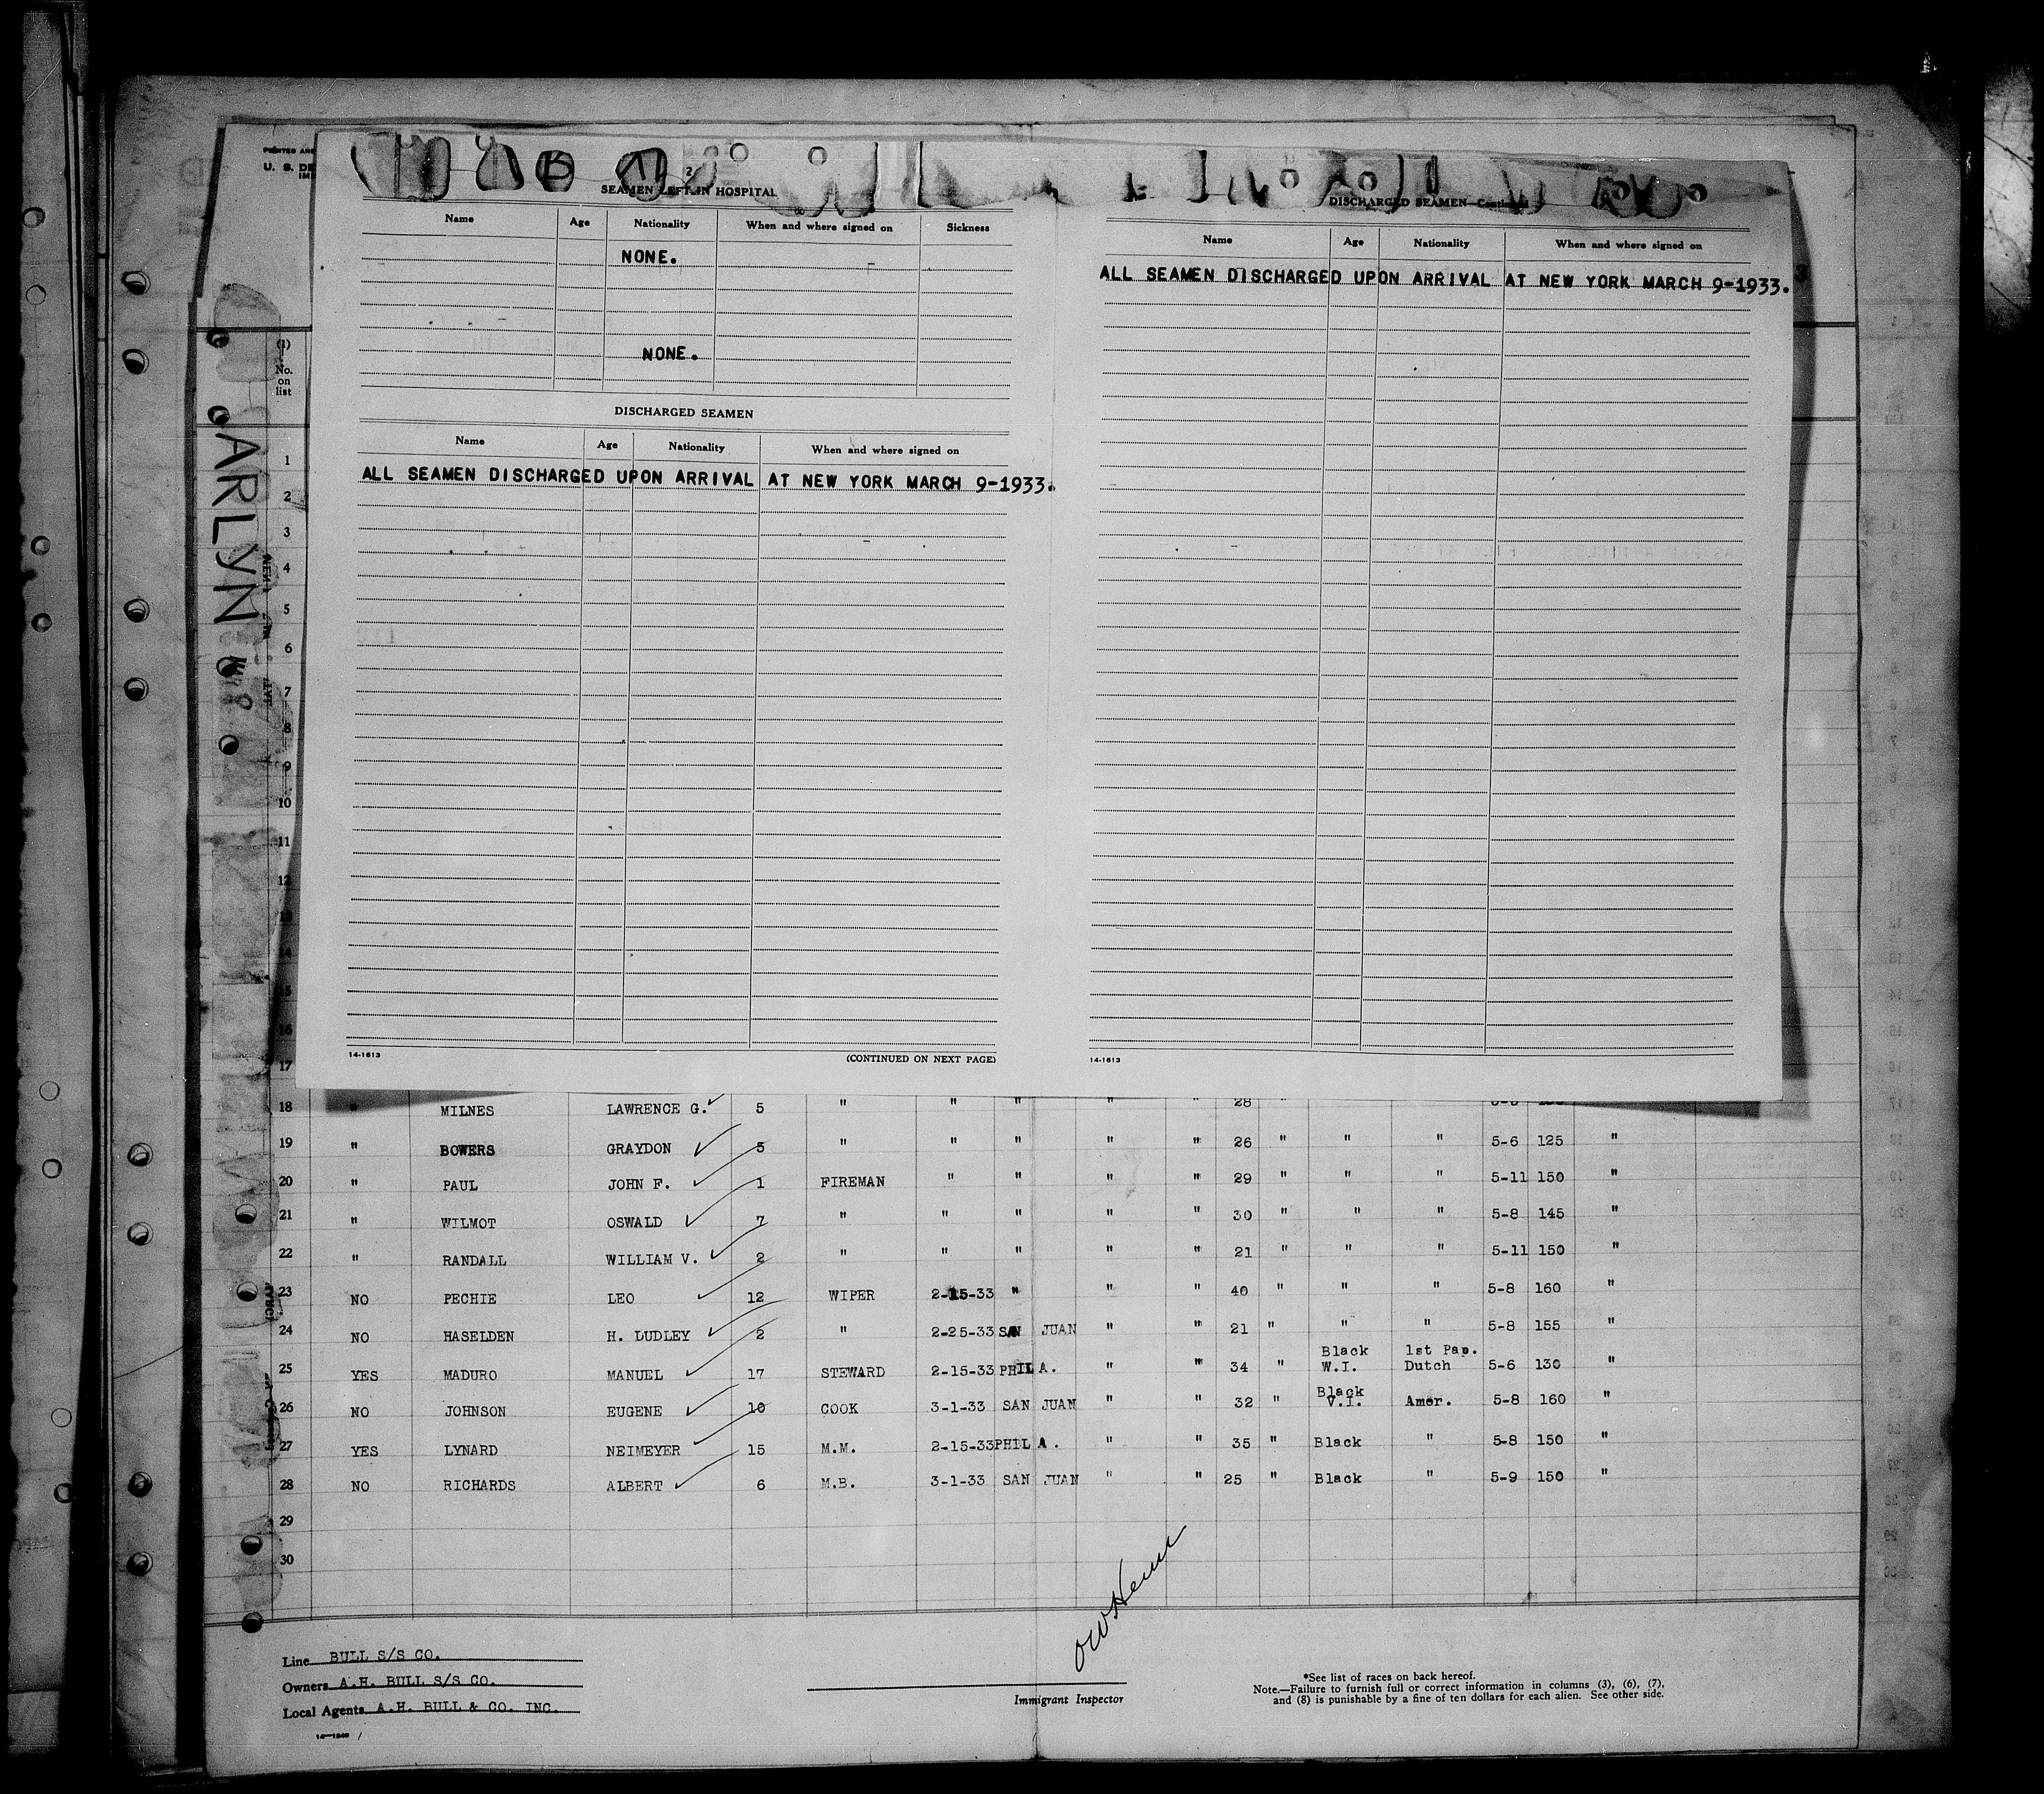 PRINTED AND
U. S. DE
IM
2
SEAMEN LEFT IN HOSPITAL
Name Age Nationality When and where signed on Sickness
NONE.
NONE.
DISCHARGED SEAMEN
Name Age Nationality When and where signed on
ALL SEAMEN DISCHARGED UPON ARRIVAL AT NEW YORK MARCH 9-1933.
14-1613 (CONTINUED ON NEXT PAGE)
3
DISCHARGED SEAMEN—Continued
Name Age Nationality When and where signed on
ALL SEAMEN DISCHARGED UPON ARRIVAL AT NEW YORK MARCH 9-1933.
14-1613
ARLYN
(1)
No.
on
list
1
2
3
4
5
6
7
8
9
10
11
12
13
14
15
16
17
18 " MILNES LAWRENCE G. 5 " " " " 28 "
19 " BOWERS GRAYDON 5 " " " " " 26 " " " 5-6 125 "
20 " PAUL JOHN F. 1 FIREMAN " " " " 29 " " " 5-11 150 "
21 " WILMOT OSWALD 7 " " " " " 30 " " " 5-8 145 "
22 " RANDALL WILLIAM V. 2 " " " " " 21 " " " 5-11 150 "
23 NO PECHIE LEO 12 WIPER 2-15-33 " " " 40 " " " 5-8 160 "
24 NO HASELDEN H. DUDLEY 2 " 2-25-33 SAN JUAN " " 21 " " " 5-8 155 "
25 YES MADURO MANUEL 17 STEWARD 2-15-33 PHILA. " " 34 " Black W.I. 1st Pap. Dutch 5-6 130 "
26 NO JOHNSON EUGENE 10 COOK 3-1-33 SAN JUAN " " 32 " Black V.I. Amer. 5-8 160 "
27 YES LYNARD NEIMEYER 15 M.M. 2-15-33 PHILA. " " 35 " Black " 5-8 150 "
28 NO RICHARDS ALBERT 6 M.B. 3-1-33 SAN JUAN " " 25 " Black " 5-9 150 "
29
30
Line BULL S/S CO.
Owners A.H. BULL S/S CO.
Local Agents A.H. BULL & CO. INC.
14-1240
Immigrant Inspector
*See list of races on back hereof.
Note.—Failure to furnish full or correct information in columns (3), (6), (7),
and (8) is punishable by a fine of ten dollars for each alien. See other side.